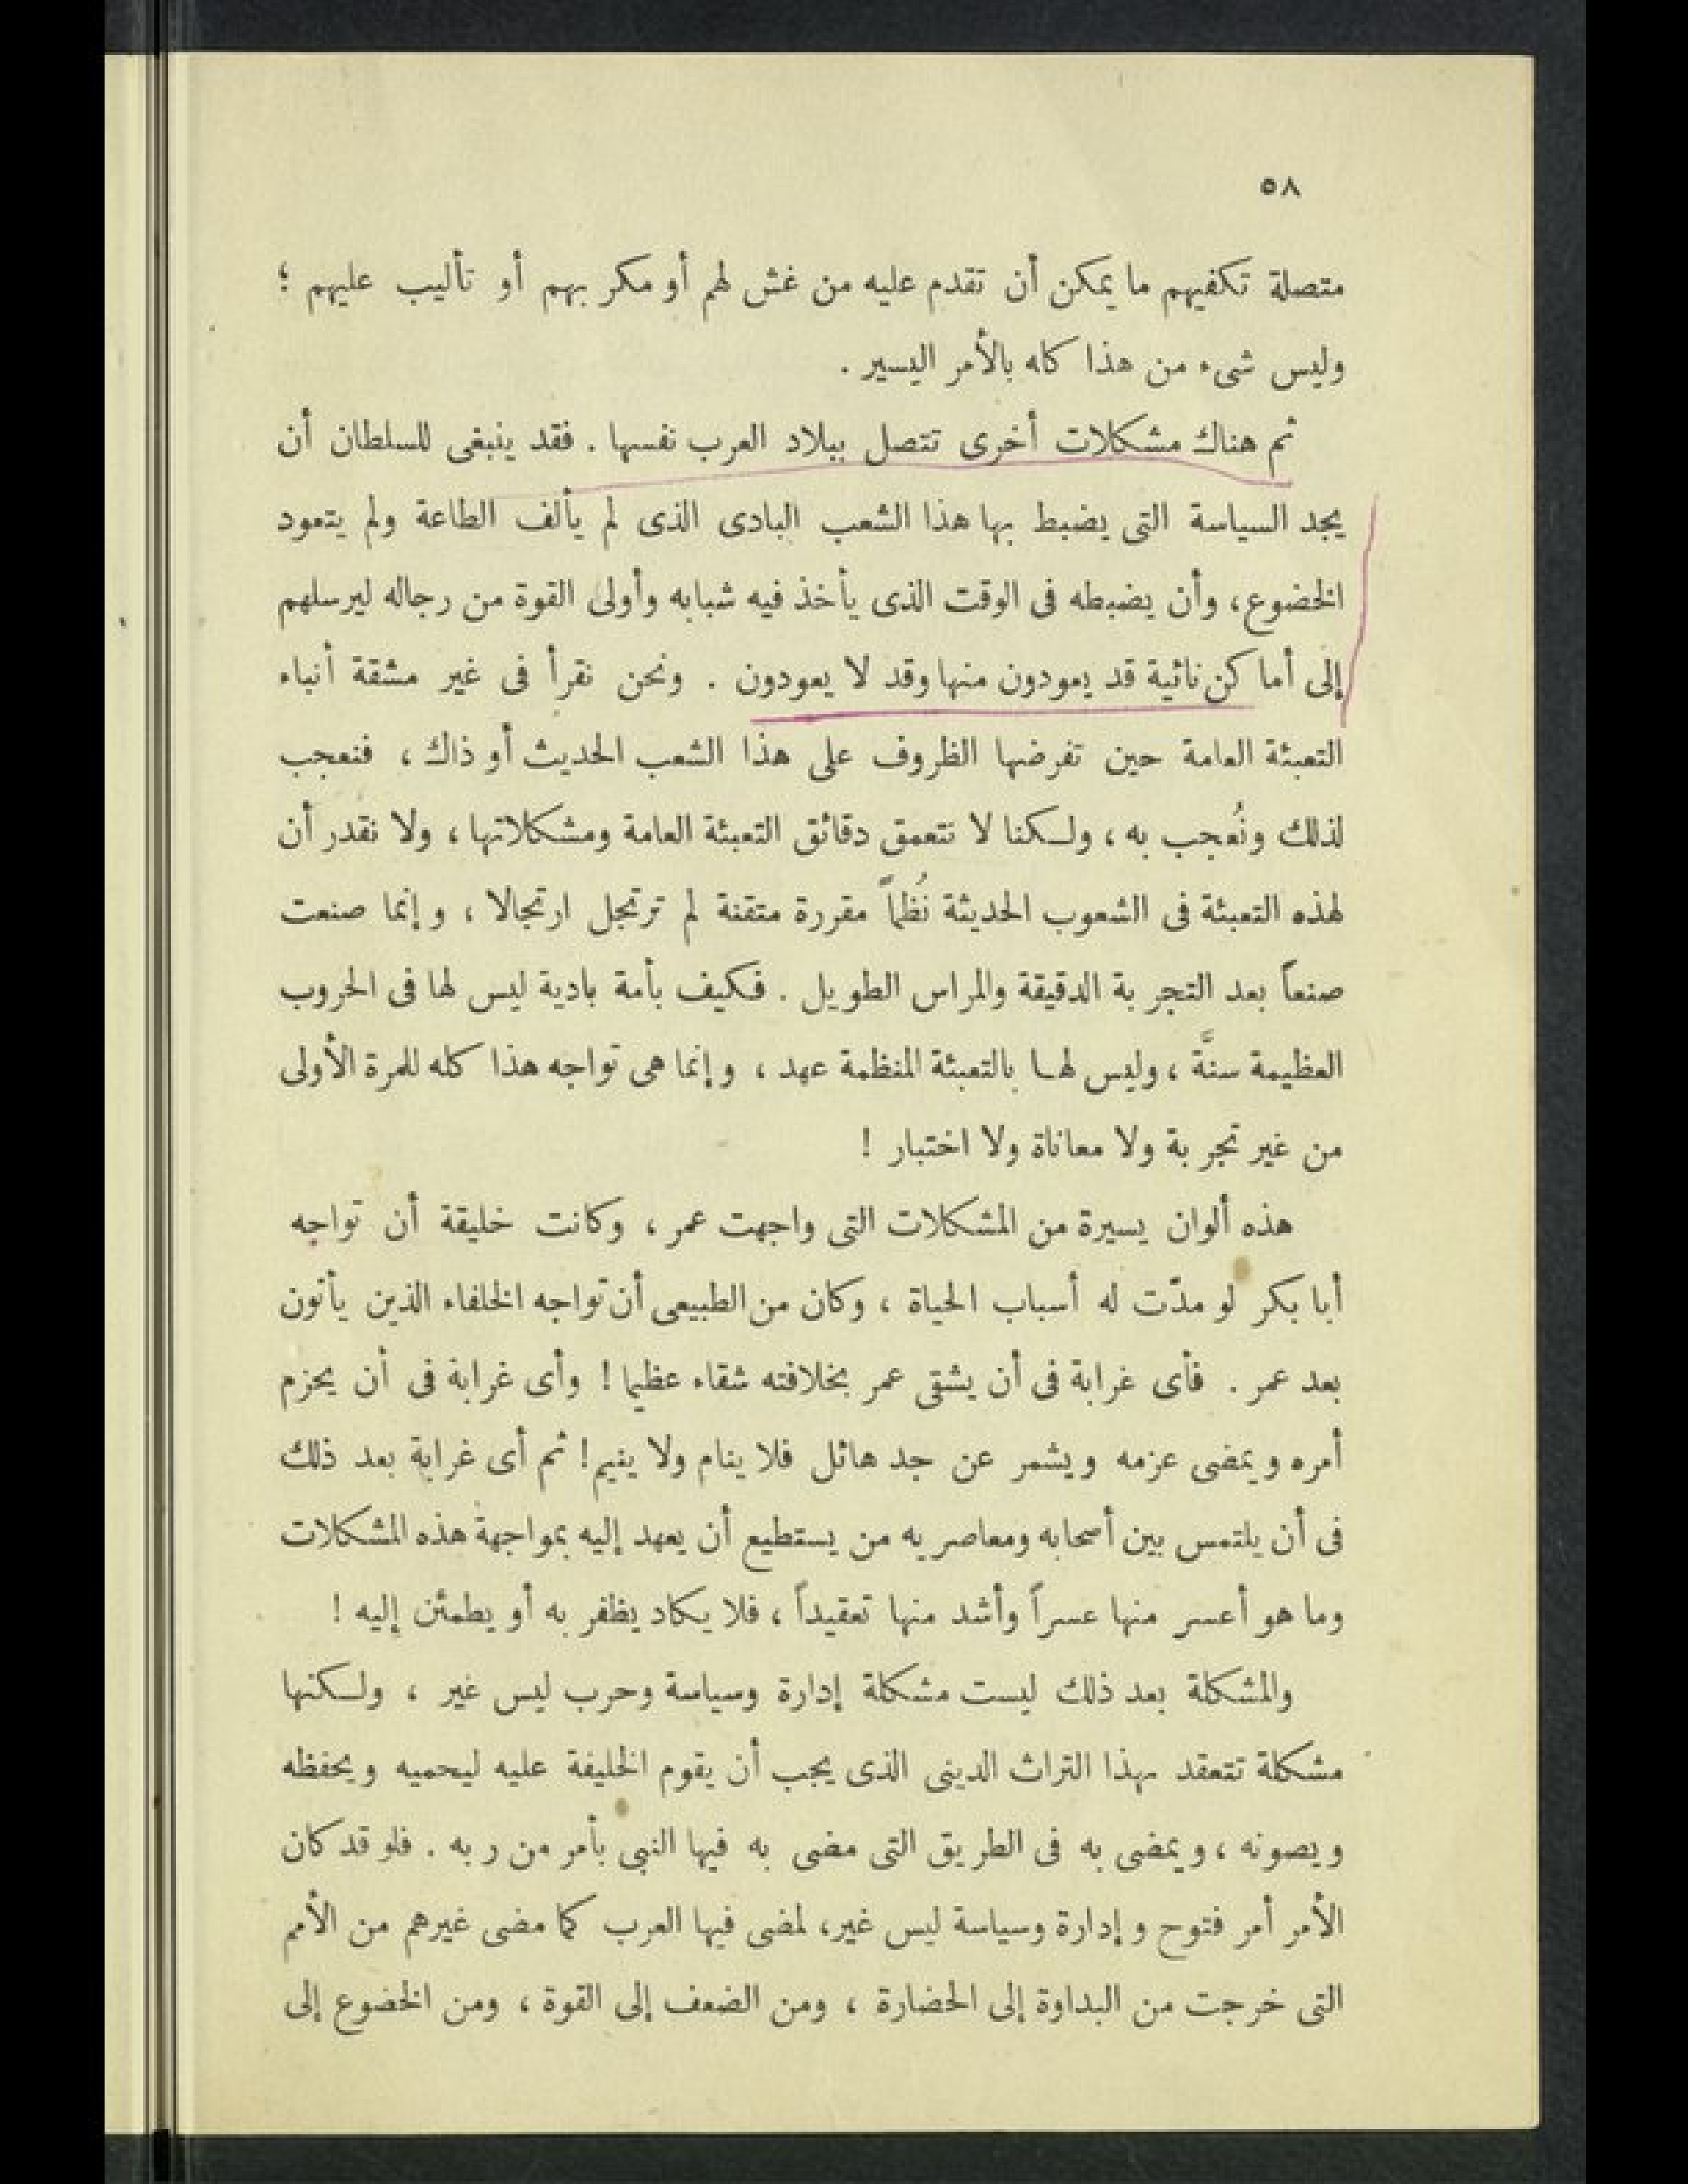 ٥٨
متصلة تكفيهم ما يمكن أن تقدم عليه من غش لهم أو مكر بهم أو تأليب عليهم ؛
وليس شىء من هذا كله بالأمر اليسير .
ثم هناك مشكلات أخرى تتصل ببلاد العرب نفسها . فقد ينبغى للسلطان أن
يجد السياسة التى يضبط بها هذا الشعب البادى الذى لم يألف الطاعة ولم يتعود
الخضوع ، وأن يضبطه فى الوقت الذى يأخذ فيه شبابه وأولى القوة من رجاله ليرسلهم
إلى أماكن نائية قد يعودون منها وقد لا يعودون . ونحن نقرأ فى غير مشقة أنباء
التعبئة العامة حين تفرضها الظروف على هذا الشعب الحديث أو ذاك ، فنعجب
لذلك ونُعجب به ، ولكنا لا نتعمق دقائق التعبئة العامة ومشكلاتها ، ولا نقدر أن
لهذه التعبئة فى الشعوب الحديثة نُظماً مقررة متقنة لم ترتجل ارتجالا ، وإنما صنعت
صنعاً بعد التجربة الدقيقة والمراس الطويل . فكيف بأمة بادية ليس لها فى الحروب
العظيمة سنَّة ، وليس لها بالتعبئة المنظمة عهد ، وإنما هى تواجه هذا كله للمرة الأولى
من غير تجربة ولا معاناة ولا اختبار !
هذه ألوان يسيرة من المشكلات التى واجهت عمر ، وكانت خليقة أن تواجه
أبا بكر لو مدّت له أسباب الحياة ، وكان من الطبيعى أن تواجه الخلفاء الذين يأتون
بعد عمر . فأى غرابة فى أن يشقى عمر بخلافته شقاء عظيما ! وأى غرابة فى أن يحزم
أمره ويمضى عزمه ويشمر عن جد هائل فلا ينام ولا ينيم ! ثم أى غرابة بعد ذلك
فى أن يلتمس بين أصحابه ومعاصريه من يستطيع أن يعهد إليه بمواجهة هذه المشكلات
وما هو أعسر منها عسراً وأشد منها تعقيداً ، فلا يكاد يظفر به أو يطمئن إليه !
والمشكلة بعد ذلك ليست مشكلة إدارة وسياسة وحرب ليس غير ، ولكنها
مشكلة تتعقد بهذا التراث الدينى الذى يجب أن يقوم الخليفة عليه ليحميه ويحفظه
ويصونه ، ويمضى به فى الطريق التى مضى به فيها النبى بأمر من ربه . فلو قد كان
الأمر أمر فتوح وإدارة وسياسة ليس غير ، لمضى فيها العرب كما مضى غيرهم من الأمم
التى خرجت من البداوة إلى الحضارة ، ومن الضعف إلى القوة ، ومن الخضوع إلى